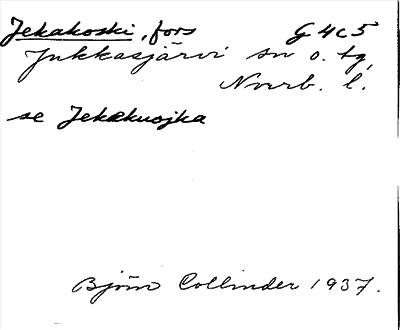 Jekakoski, fors G 4 c 5
Jukkasjärvi sn o. tg,
Norrb. l.
se Jekækuojka
Björn Collinder 1937.